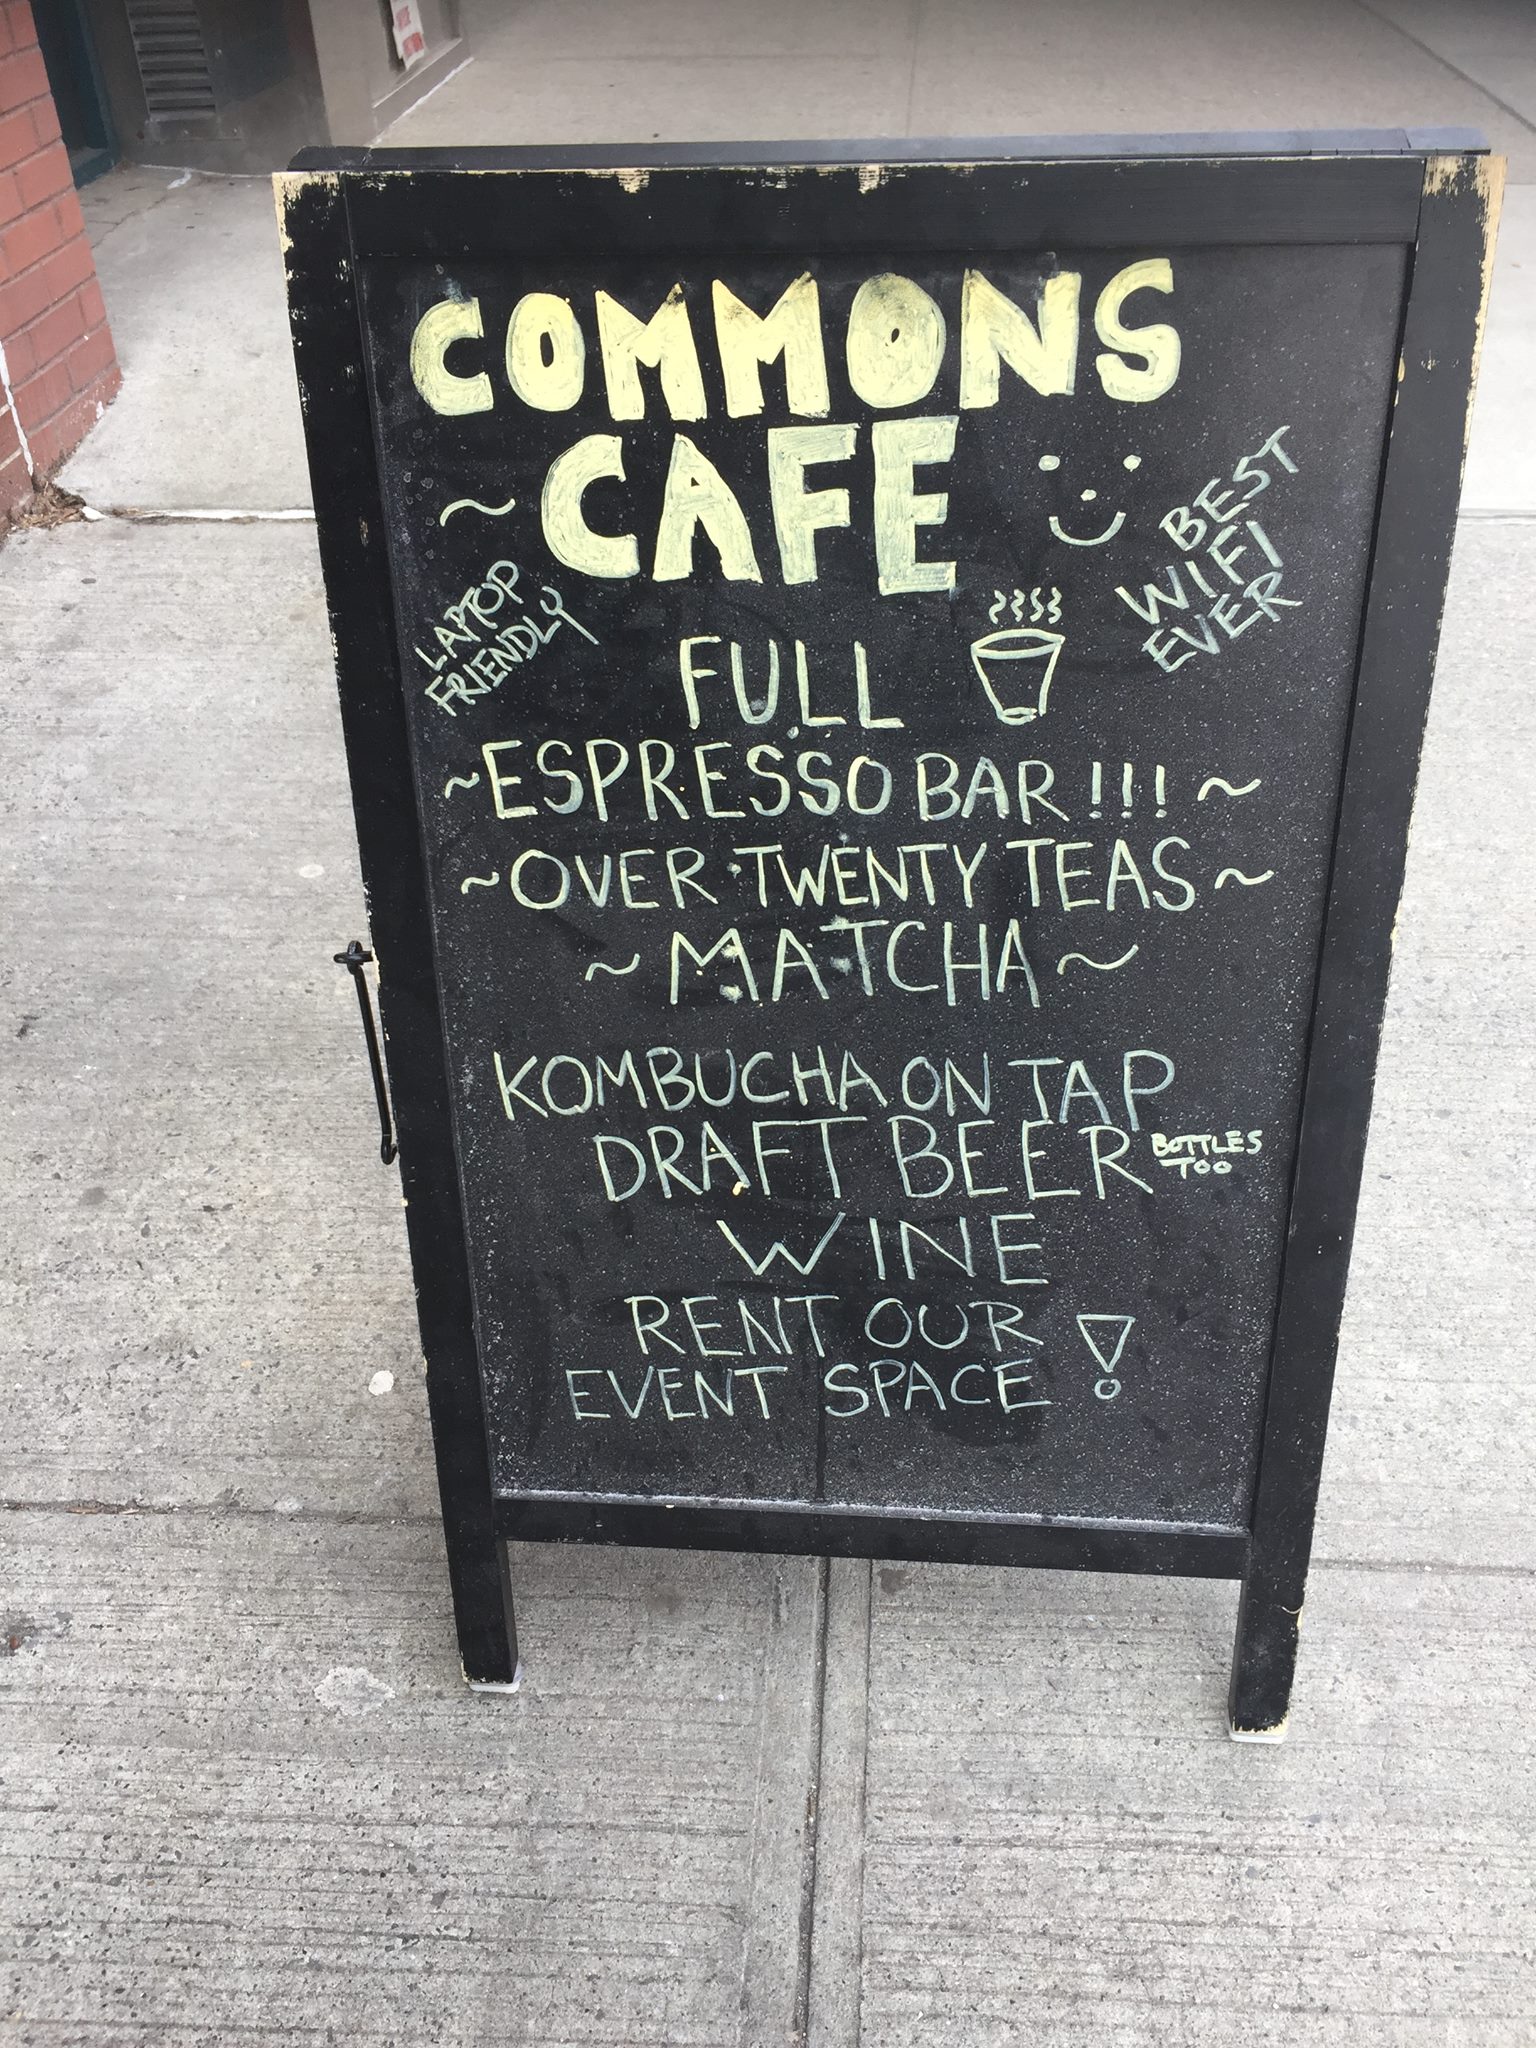 COMMONS
~ CAFE
LAPTOP
FRIENDLY
BEST
WIFI
EVER
FULL
~ESPRESSO BAR!!!~
~OVER TWENTY TEAS~
~MATCHA~
KOMBUCHA ON TAP
DRAFT BEER BOTTLES
TOO
WINE
RENT OUR
EVENT SPACE !